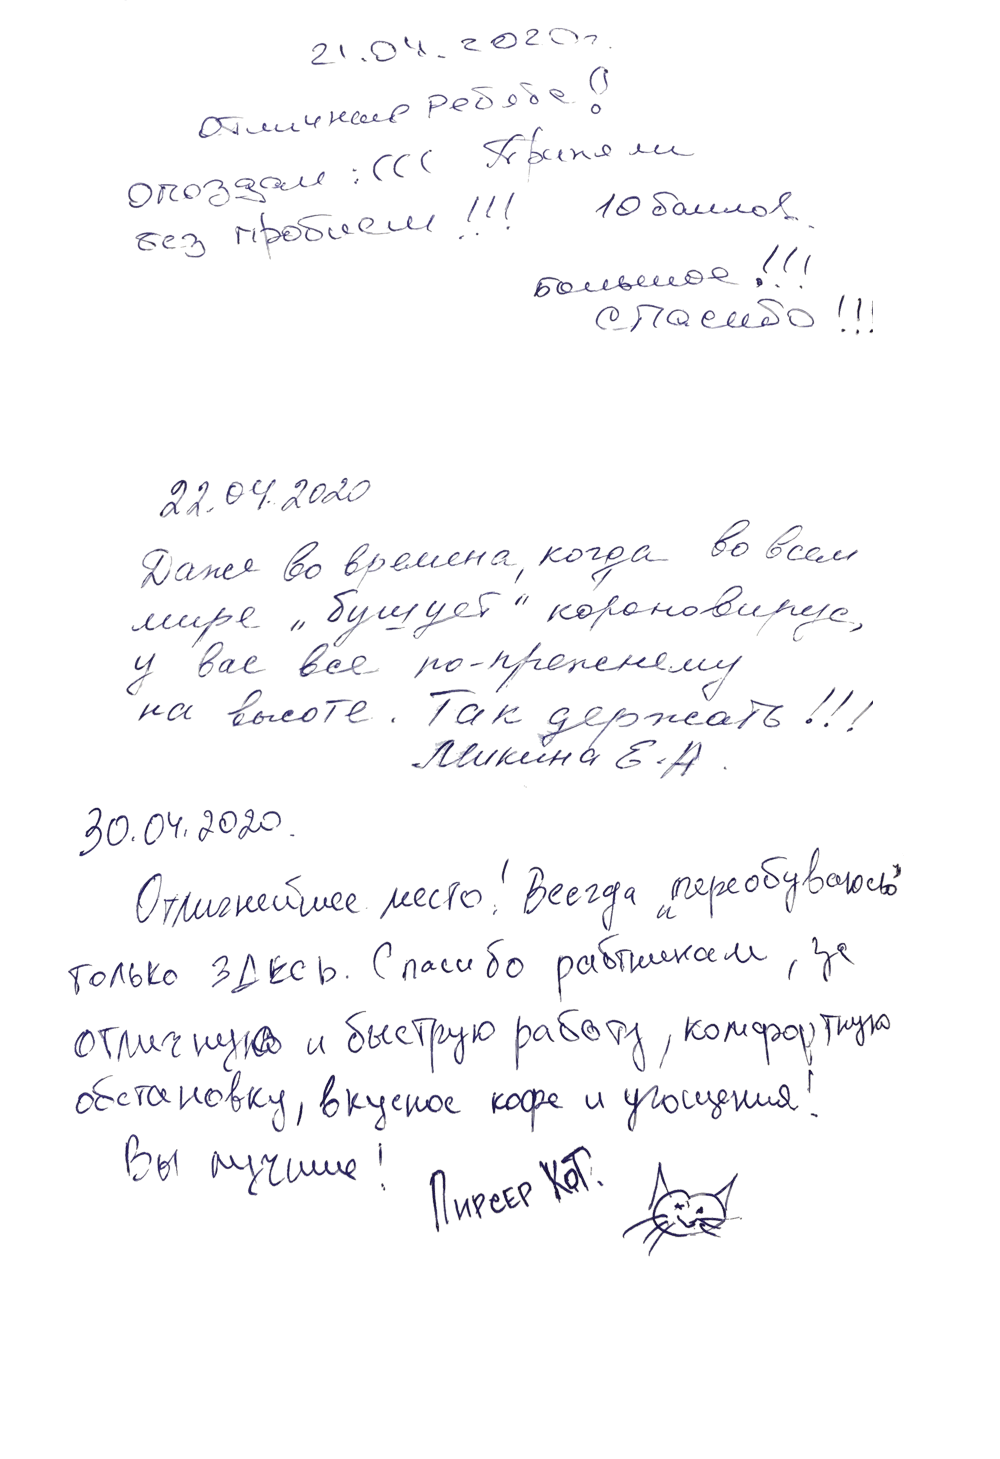 21.04.2020г.
Отличные ребята!
Опоздал :((( Приняли
без проблем!!! 10 баллов.
Большое!!!
спасибо!!!
22.04.2020
Даже во времена, когда во всем
мире „бушует“ короновирус,
у вас все по-прежнему
на высоте. Так держать!!!
Микина Е.А.
30.04.2020.
Отличнейшее место! Всегда „переобуваюсь“
только здесь. Спасибо работникам, за
отличную и быструю работу, комфортную
обстановку, вкусное кофе и угощения!
Вы лучшие!
Пирсер Кот.